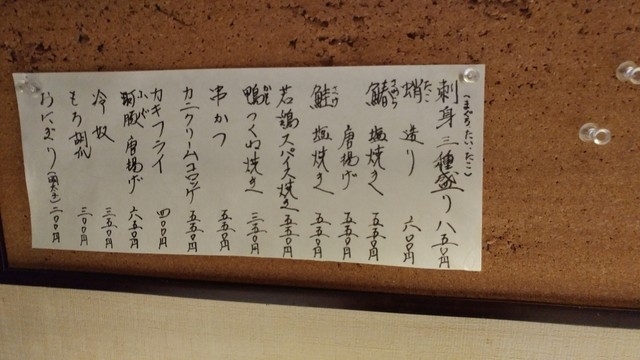 刺身三種盛り 八五〇円
(まぐろ・たい・たこ)
蛸造り 六〇〇円
たこ
鰆塩焼き 五五〇円
さわら
唐揚げ 五五〇円
鮭塩焼き 五五〇円
さけ
若鶏スパイス焼き 五五〇円
鴨つくね焼き 三五〇円
かも
串かつ 五五〇円
カニクリームコロッケ 五五〇円
カキフライ 四〇〇円
河豚唐揚げ 六五〇円
ふぐ
冷奴 三五〇円
もろ胡瓜 三〇〇円
おにぎり(明太子) 二〇〇円